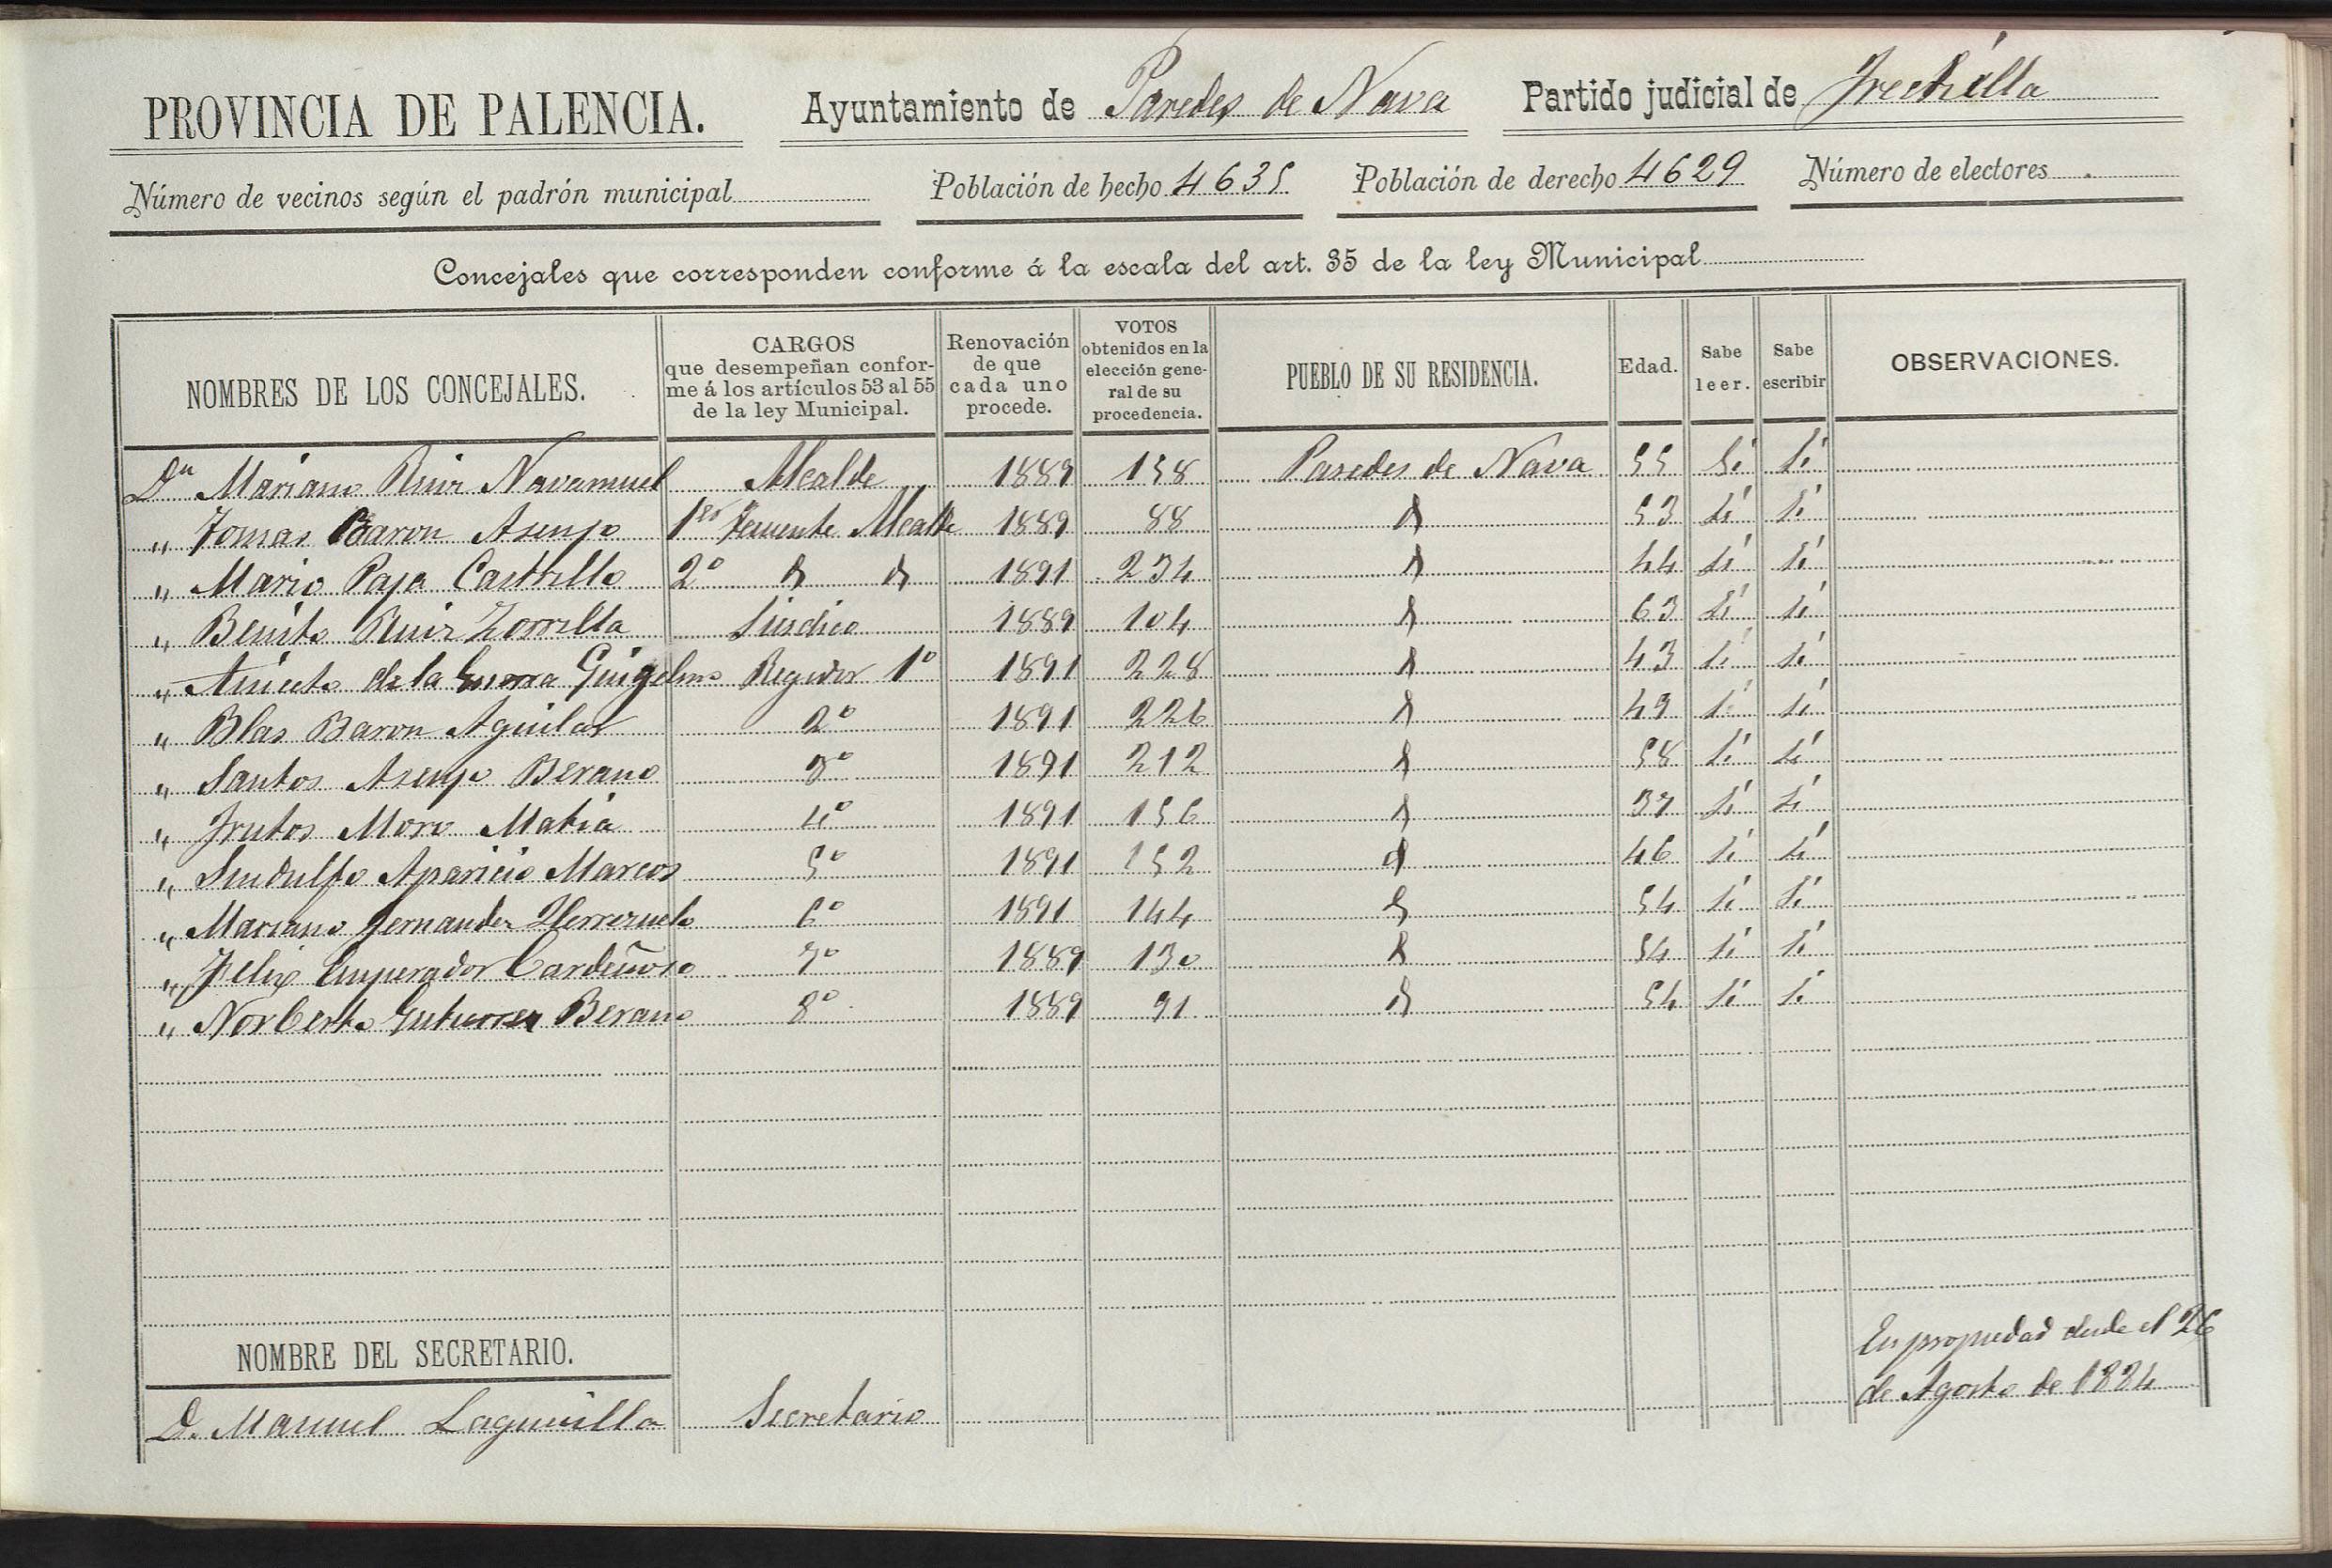 PROVINCIA DE PALENCIA. Ayuntamiento de Paredes de Nava Partido judicial de Frechilla
Número de vecinos según el padrón municipal Población de hecho 4635 Población de derecho 4629 Número de electores
Concejales que corresponden conforme á la escala del art. 35 de la ley Municipal
NOMBRES DE LOS CONCEJALES. CARGOS que desempeñan conforme á los artículos 53 al 55 de la ley Municipal. Renovación de que cada uno procede. VOTOS obtenidos en la elección general de su procedencia. PUEBLO DE SU RESIDENCIA. Edad. Sabe leer. Sabe escribir OBSERVACIONES.
Dn Mariano Ruiz Navamuel Alcalde 1889 158 Paredes de Nava 55 Sí Sí
" Tomas Baron Asenjo 1er Teniente Alcalde 1889 88 d 53 sí sí
" Mario Paja Castrillo 2º d d 1891 234 d 44 sí sí
" Benito Ruiz Zorrilla Sindico 1889 104 d 63 sí sí
" Aniceto de la Guerra Guigelmo Regidor 1º 1891 228 d 43 sí sí
" Blas Baron Aguilar 2º 1891 226 d 49 sí sí
" Santos Asenjo Berano 3º 1891 212 d 58 sí sí
" Frutos Moro Matia 4º 1891 156 d 37 sí sí
" Sindulfo Aparicio Marcos 5º 1891 152 d 46 sí sí
" Mariano Fernandez Herrezuelo 6º 1891 144 d 54 sí sí
" Felix Emperador Cardeñoso 7º 1889 130 d 54 sí sí
" Norberto Gutierrez Berano 8º 1889 91 d 54 sí sí
NOMBRE DEL SECRETARIO.
D. Manuel Lagunilla Secretario En propiedad desde el 26
de Agosto de 1884